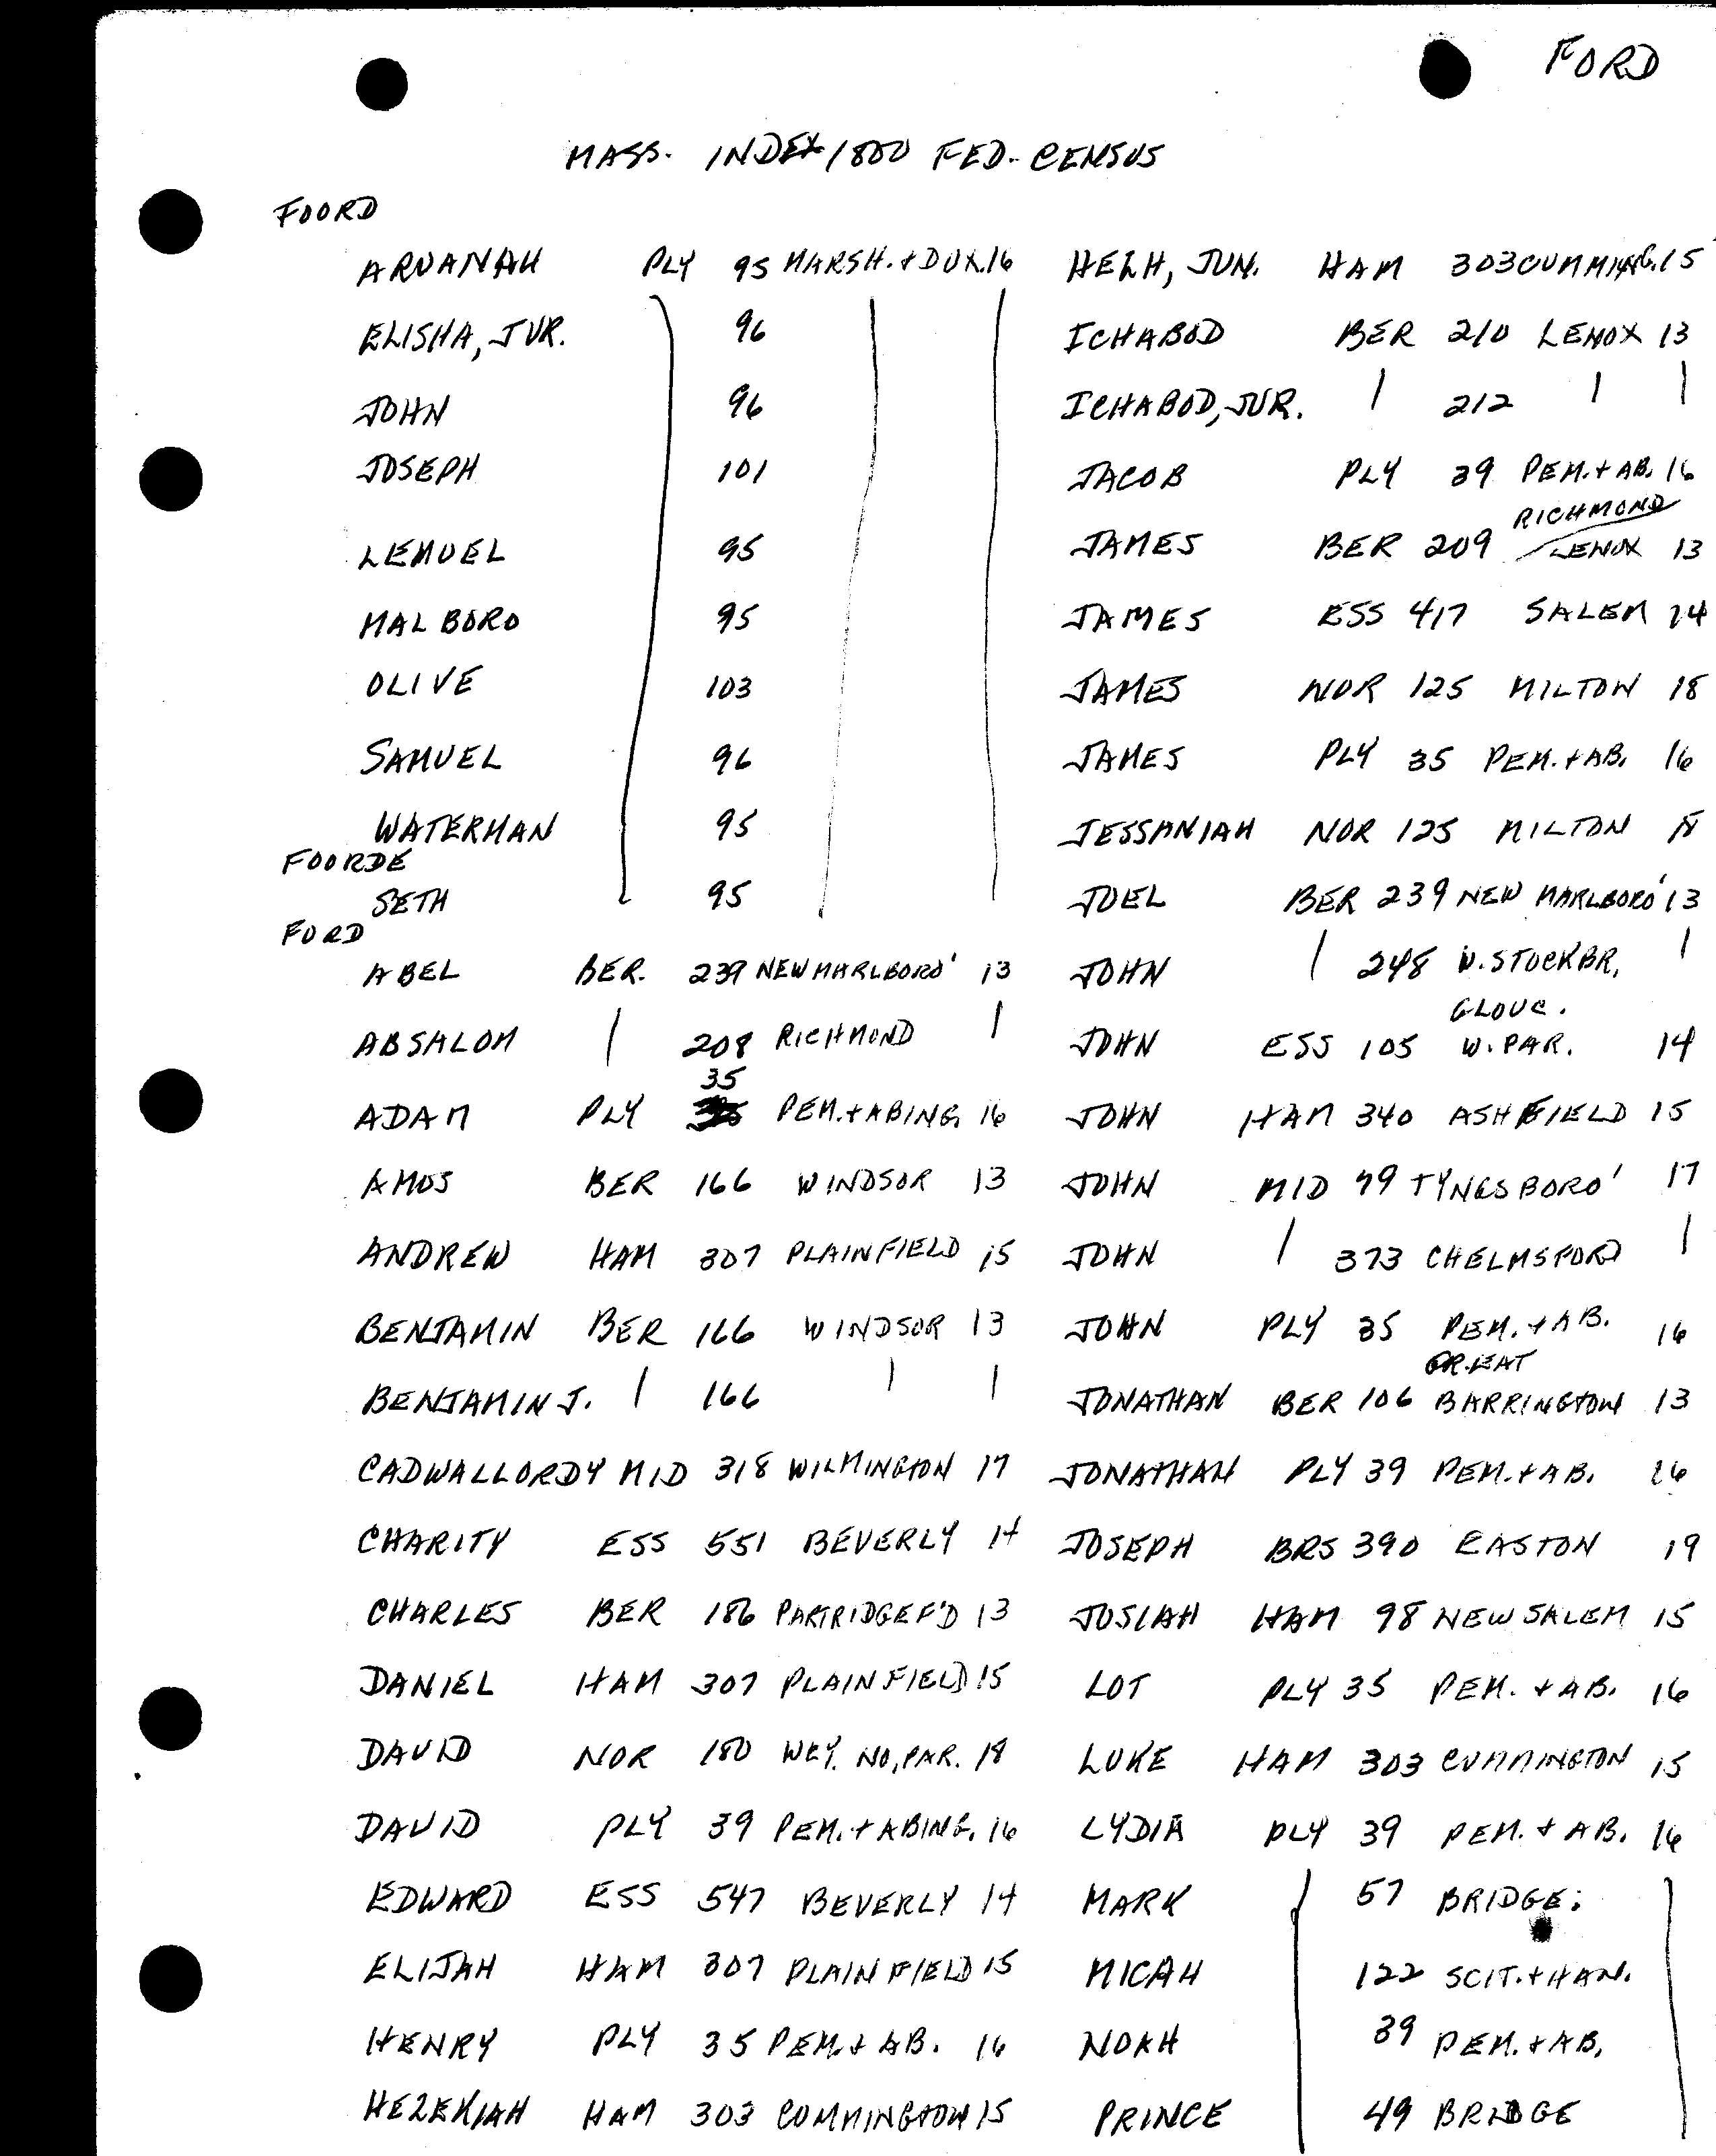 FORD
MASS. INDEX 1800 FED. CENSUS
FOORD
ARVANAH PLY 95 MARSH. + DUX. 16
ELISHA, JUR. 96
JOHN 96
JOSEPH 101
LEMUEL 95
MALBORO 95
OLIVE 103
SAMUEL 96
WATERMAN 95
FOORDE
SETH 95
FORD
ABEL BER. 239 NEW MARLBORO' 13
ABSALOM | 208 RICHMOND |
35
ADAM PLY PEM. + ABING. 16
AMOS BER 166 WINDSOR 13
ANDREW HAM 307 PLAINFIELD 15
BENJAMIN BER 166 WINDSOR 13
BENJAMIN J. | 166 | |
CADWALLORDY MID 318 WILMINGTON 17
CHARITY ESS 551 BEVERLY 14
CHARLES BER 186 PARTRIDGEF'D 13
DANIEL HAM 307 PLAINFIELD 15
DAVID NOR 180 WEY. NO. PAR. 18
DAVID PLY 39 PEM. + ABING. 16
EDWARD ESS 547 BEVERLY 14
ELIJAH HAM 307 PLAINFIELD 15
HENRY PLY 35 PEM. + AB. 16
HEZEKIAH HAM 303 CUMMINGTON 15
HEZH, JUN. HAM 303 CUMMING. 15
ICHABOD BER 210 LENOX 13
ICHABOD, JUR. | 212 | |
JACOB PLY 39 PEM. + AB. 16
RICHMOND
JAMES BER 209 LENOX 13
JAMES ESS 417 SALEM 14
JAMES NOR 125 MILTON 18
JAMES PLY 35 PEM. + AB. 16
JESSANIAH NOR 125 MILTON
JOEL BER 239 NEW MARLBORO' 13
JOHN | 248 W. STOCKBR. |
GLOUC.
JOHN ESS 105 W. PAR. 14
JOHN HAM 340 ASHFIELD 15
JOHN MID 79 TYNGSBORO' 17
JOHN | 373 CHELMSFORD |
JOHN PLY 35 PEM. + AB. 16
GREAT
JONATHAN BER 106 BARRINGTON 13
JONATHAN PLY 39 PEM. + AB. 16
JOSEPH BRS 390 EASTON 19
JOSIAH HAM 98 NEW SALEM 15
LOT PLY 35 PEM. + AB. 16
LUKE HAM 303 CUMMINGTON 15
LYDIA PLY 39 PEM. + AB. 16
MARK 57 BRIDGE.
MICAH 122 SCIT. + HAN.
NOAH 39 PEM. + AB.
PRINCE 49 BRIDGE